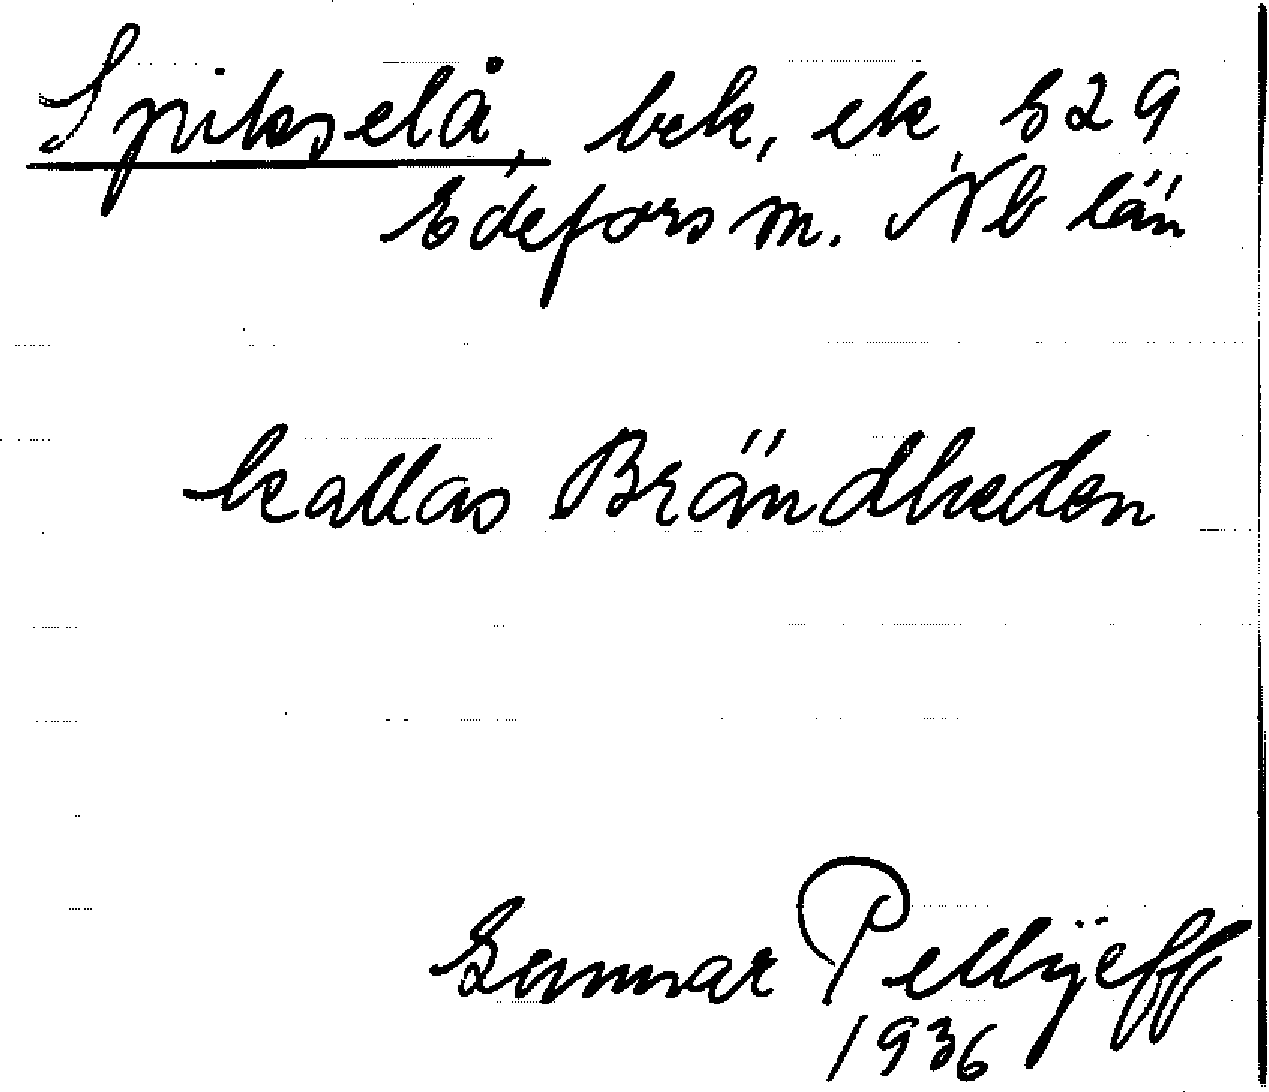 Spikselå, bek, ek 829
Edefors sn. Nb län
kallas Brändheden
Gunnar Pellijeff
1936